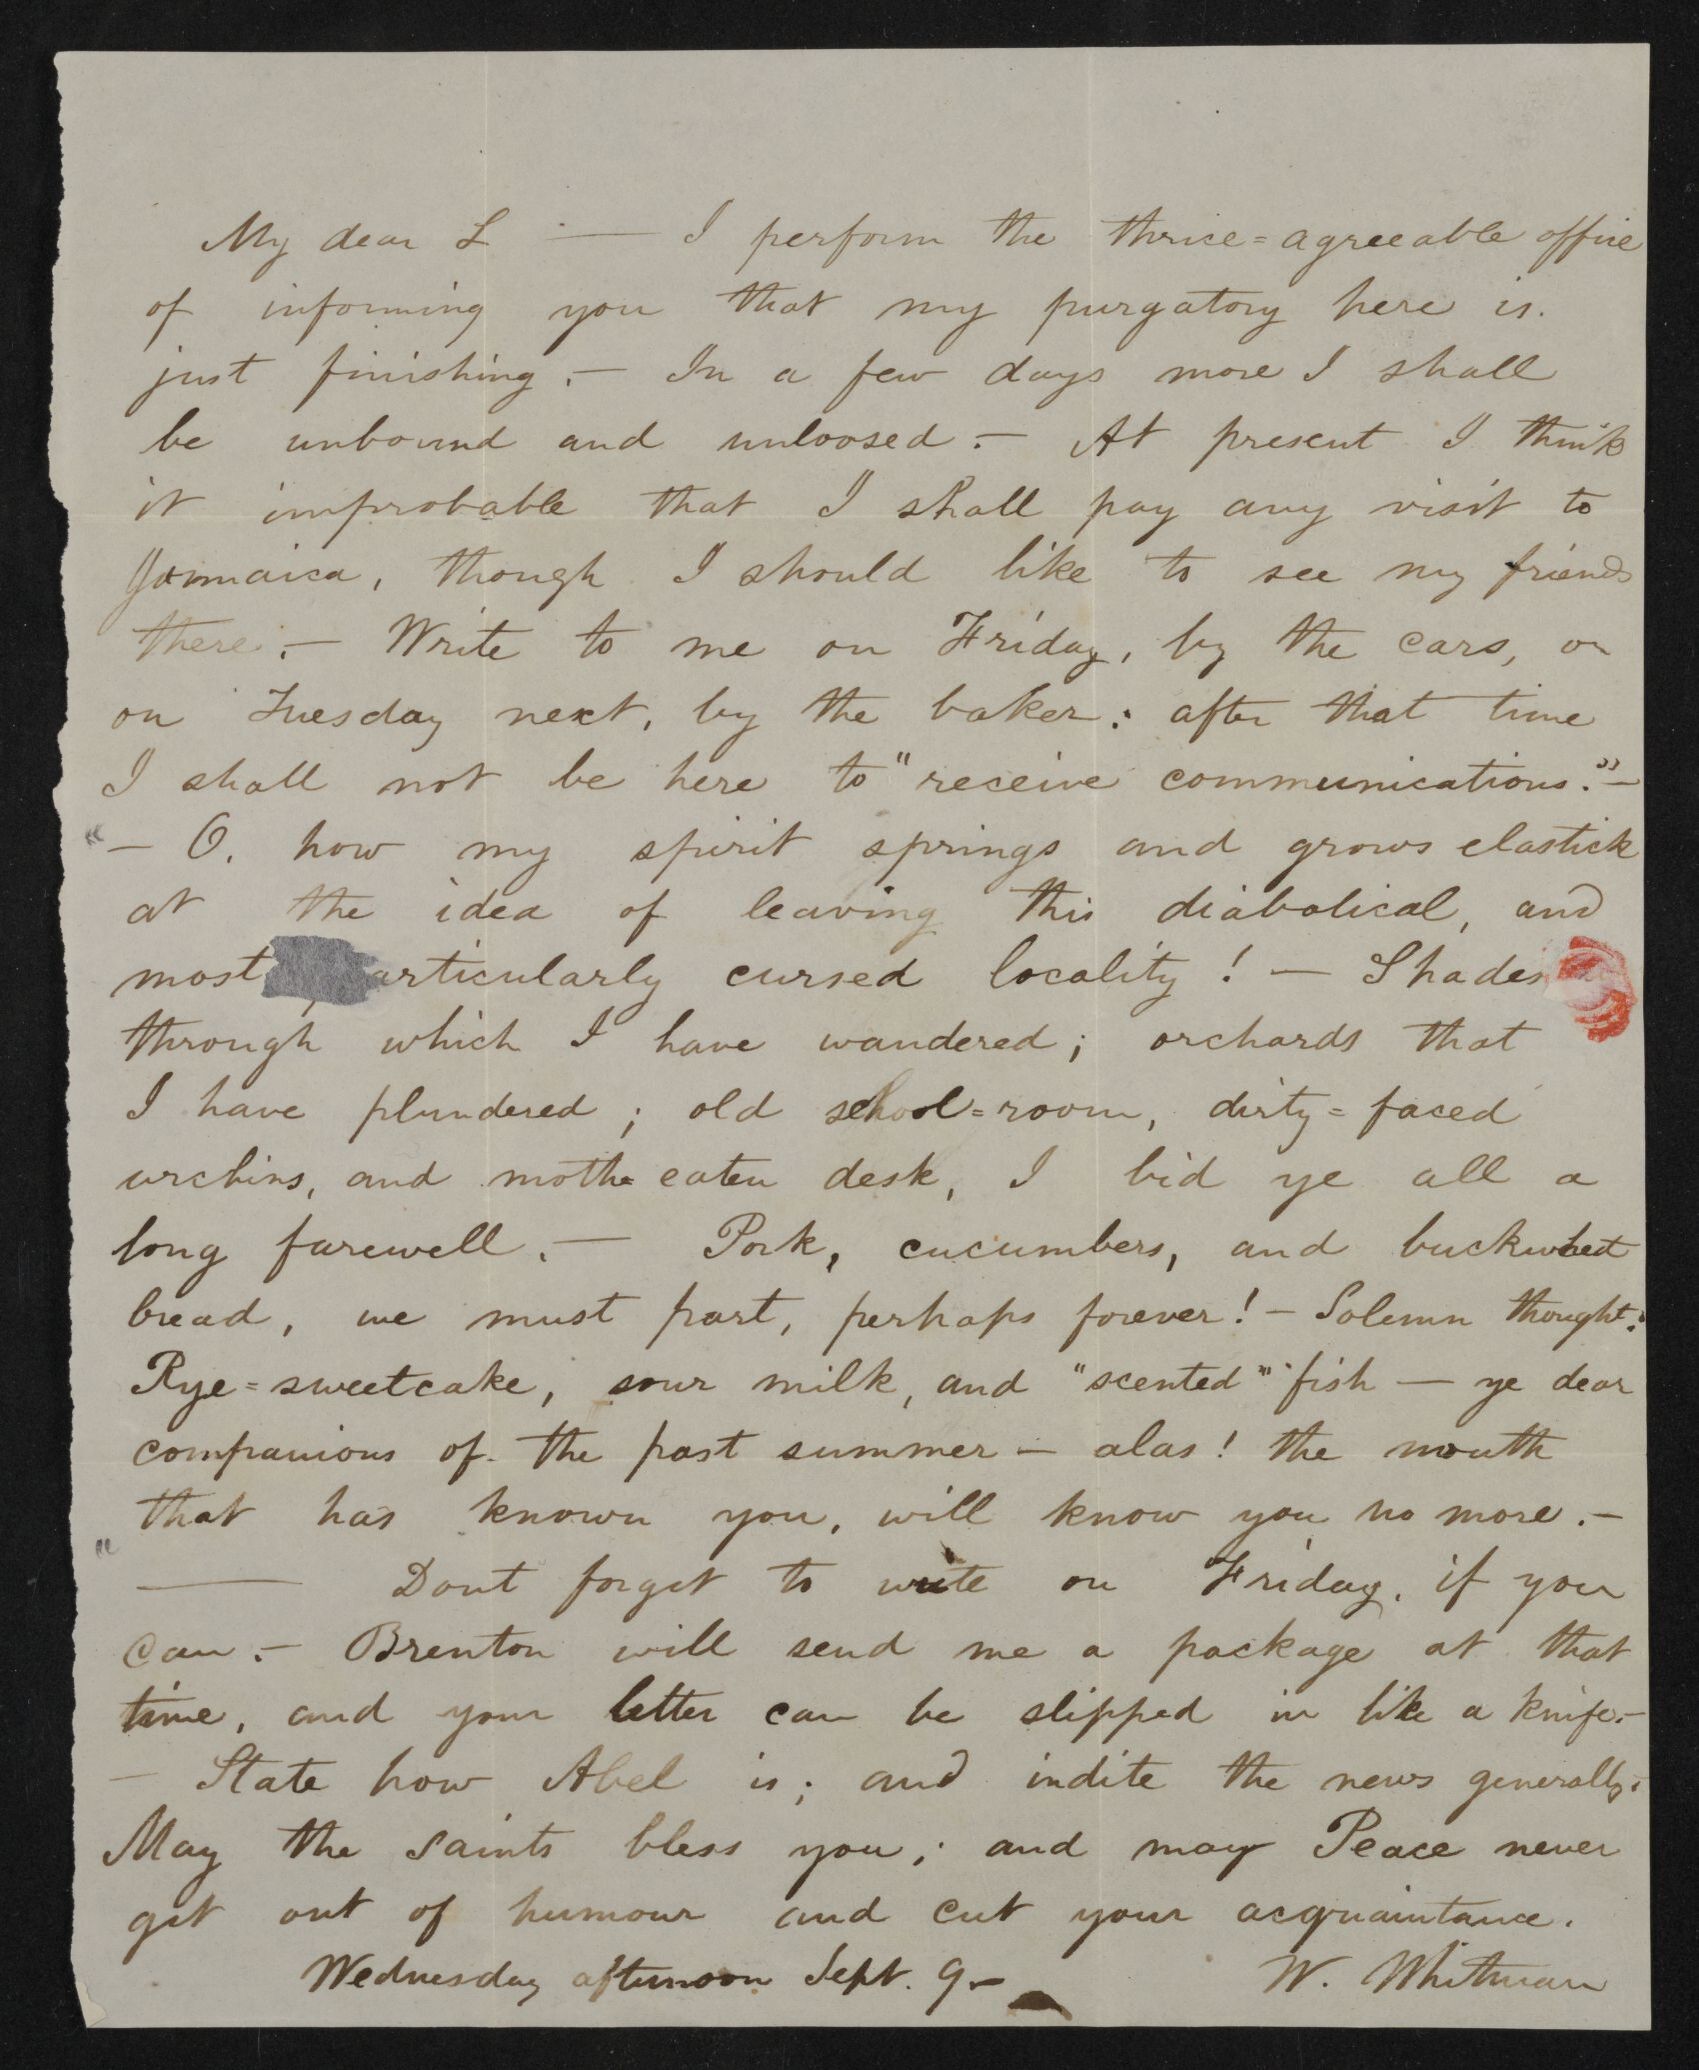 My dear L — I perform the thrice=agreeable office
of informing you that my purgatory here is
just finishing. — In a few days more I shall
be unbound and unloosed. — At present I think
it improbable that I shall pay any visit to
Jamaica, though I should like to see my friends
there. — Write to me on Friday, by the cars, or
on Tuesday next, by the baker: after that time
I shall not be here to "receive communications." —
— O, how my spirit springs and grows elastick
at the idea of leaving this diabolical, and
most particularly cursed locality! — Shades
through which I have wandered; orchards that
I have plundered; old school=room, dirty=faced
urchins, and moth=eaten desk, I bid ye all a
long farewell. — Pork, cucumbers, and buckwheat
bread, we must part, perhaps forever! — Solemn thought!
Rye=sweetcake, sour milk, and "scented" fish — ye dear
companions of the past summer — alas! the mouth
that has known you, will know you no more. —
— Dont forget to write on Friday, if you
can. — Brenton will send me a package at that
time, and your letter can be slipped in like a knife. —
— State how Abel is; and indite the news generally.
May the saints bless you; and may Peace never
get out of humour and cut your acquaintance.
Wednesday afternoon Sept. 9 — W. Whitman